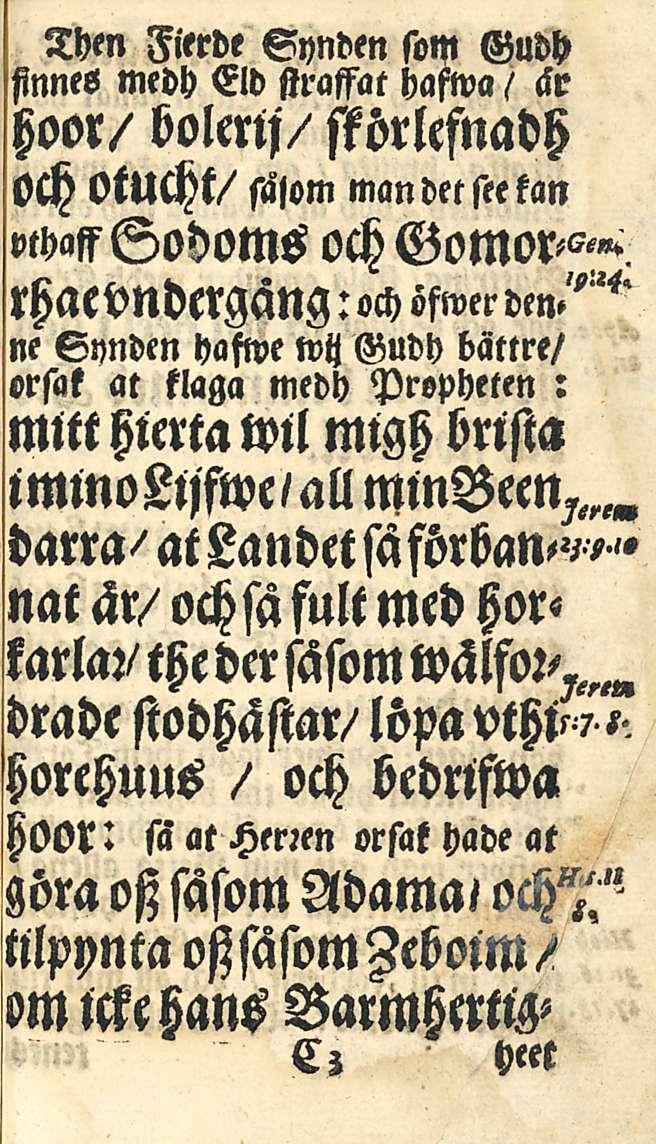 Then Fierde Synden som Gudh
finnes medh Eld straffat hafwa / är
hoor / bolerij / skörlefnadh
och otucht / såsom man det see kan
vthaff Sodoms och Gomor-
Gen.
19:24.
rhae vndergång : och öfwer den-
ne Synden hafwe wij Gudh bättre /
orsak at klaga medh Propheten :
mitt hierta wil migh brista
i mino Lijfwe / all min Been
Jerem
darra / at Landet så förban-
23:9.10
nat är / och så fult med hor-
karlar / the der såsom wälfor-
Jerem
drade stodhästar / löpa vthi
5:7.8.
horehuus / och bedrifwa
hoor : så at Herren orsak hade at
göra oß såsom Adama / och
Hos.11
8.
tilpynta oß såsom Zeboim /
om icke hans Barmhertig-
C3 heet